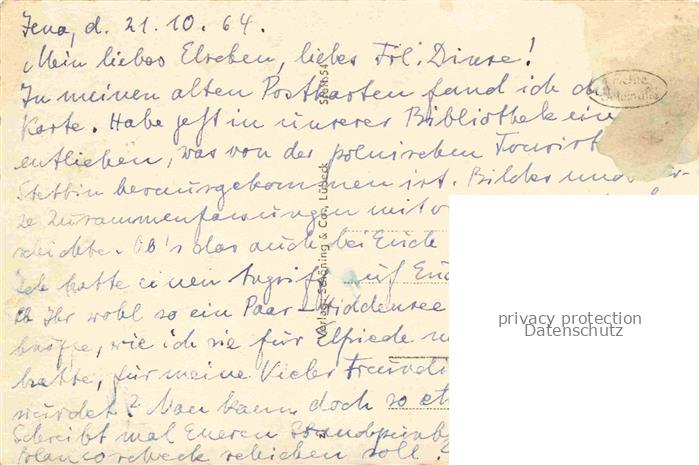 Jena, d. 21.10.64.
Mein liebes Elschen, liebes Frl. Dinse!
In meinen alten Postkarten fand ich d
Karte. Habe jetzt in unserer Bibliothek ein
entliehen, was von der polnischen Tourist
Stettin herausgekommen ist. Bilder und
ze Zusammenfassungen mit
schichte. Ob's das auch bei Euch
Ich hatte einen auf Euch
Ob Ihr wohl so ein Paar Hiddensee
knöpfe, wie ich sie für Elfriede
hatte, für meine Kieler Freundi
würdet? Man kann doch so et
Schreibt mal Eueren Standpunkt
Blancoscheck schicken soll?
Verlag: Schöning & Co., Lübeck
privacy protection
Datenschutz